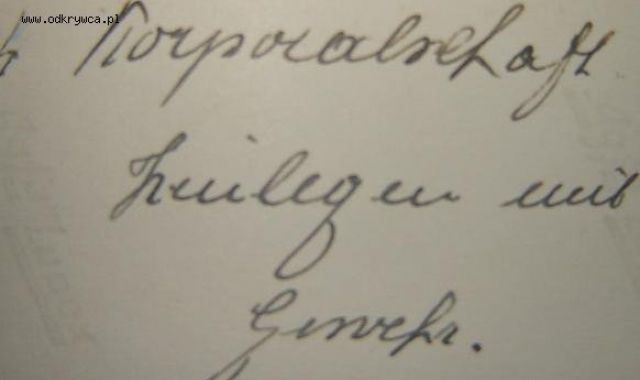 www.odkrywca.pl
Korporalschaft
mit
Gewehr.